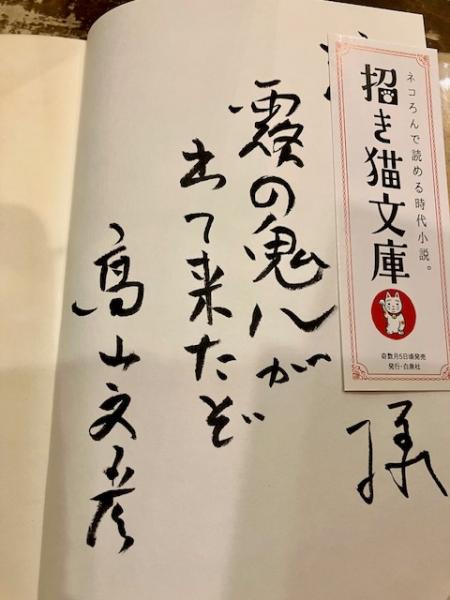 ネコろんで読める時代小説。
招き猫文庫
奇数月5日頃発売
発行・白泉社
様
の鬼八が
出て来たぞ
高山文彦